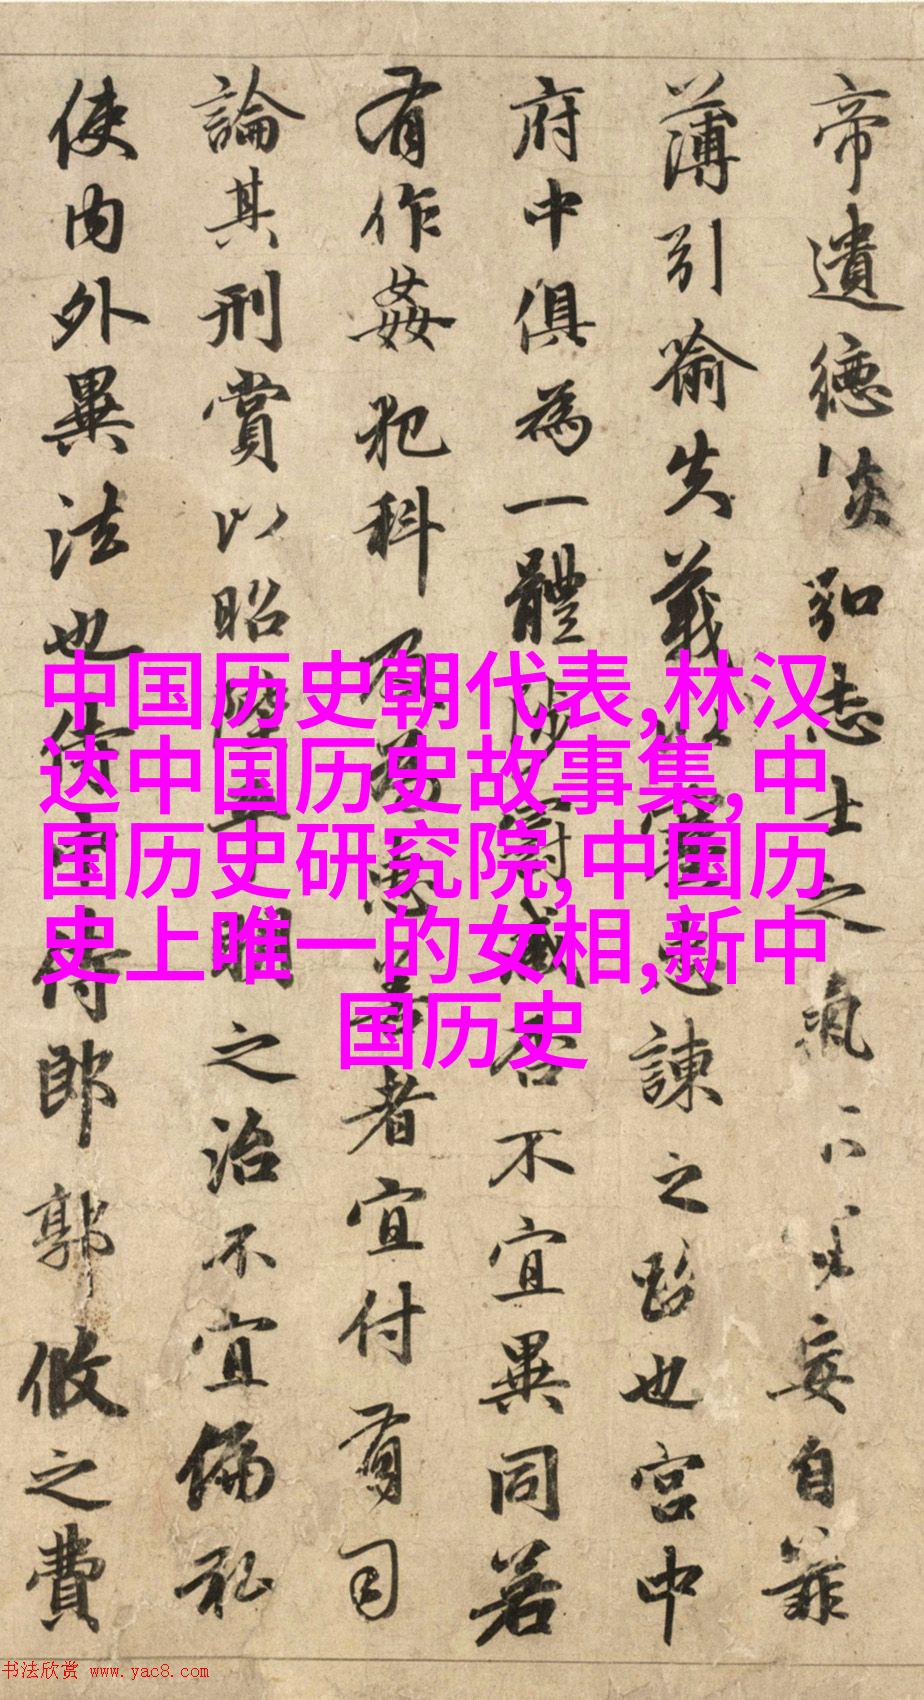 帝遺德恢弘志士之氣不宜妄自菲
薄引喻失義以塞忠諫之路也宮中
府中俱為一體陟罰臧否不宜異同若
有作姦犯科及為忠善者宜付有司
論其刑賞以昭陛平明之治不宜偏私
使內外異法也侍中侍郎郭攸之費
中国历史朝代表,林汉
达中国历史故事集,中
国历史研究院,中国历
史上唯一的女相,新中
国历史
书法欣赏 www.yac8.com